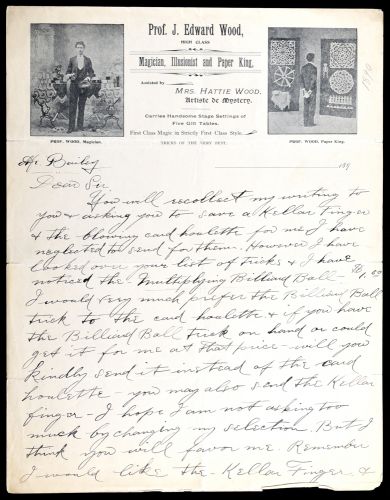 Prof. J. Edward Wood,
HIGH CLASS
Magician, Illusionist and Paper King,
Assisted by
MRS. HATTIE WOOD,
Artiste de Mystery.
Carries Handsome Stage Settings of
Five Gilt Tables.
First Class Magic in Strictly First-Class Style.
TRICKS OF THE VERY BEST.
PROF. WOOD, Magician.
PROF. WOOD, Paper King.
189
Mr Bailey
Dear Sir
You will recollect my writing to
you & asking you to save a Kellar Finger
& the blowing card houlette for me I have
neglected to send for them. However I have
looked over your list of tricks & I have
noticed the "Multiplying Billiard Ball"
I would very much prefer the Billiard Ball
trick to the card houlette & if you have
the Billiard Ball trick on hand or could
get it for me at that price - will you
kindly send it instead of the card
houlette - you may also send the Kellar
finger - I hope I am not asking too
much by changing my selection. But I
think you will favor me. Remember
I would like the - Kellar Finger &